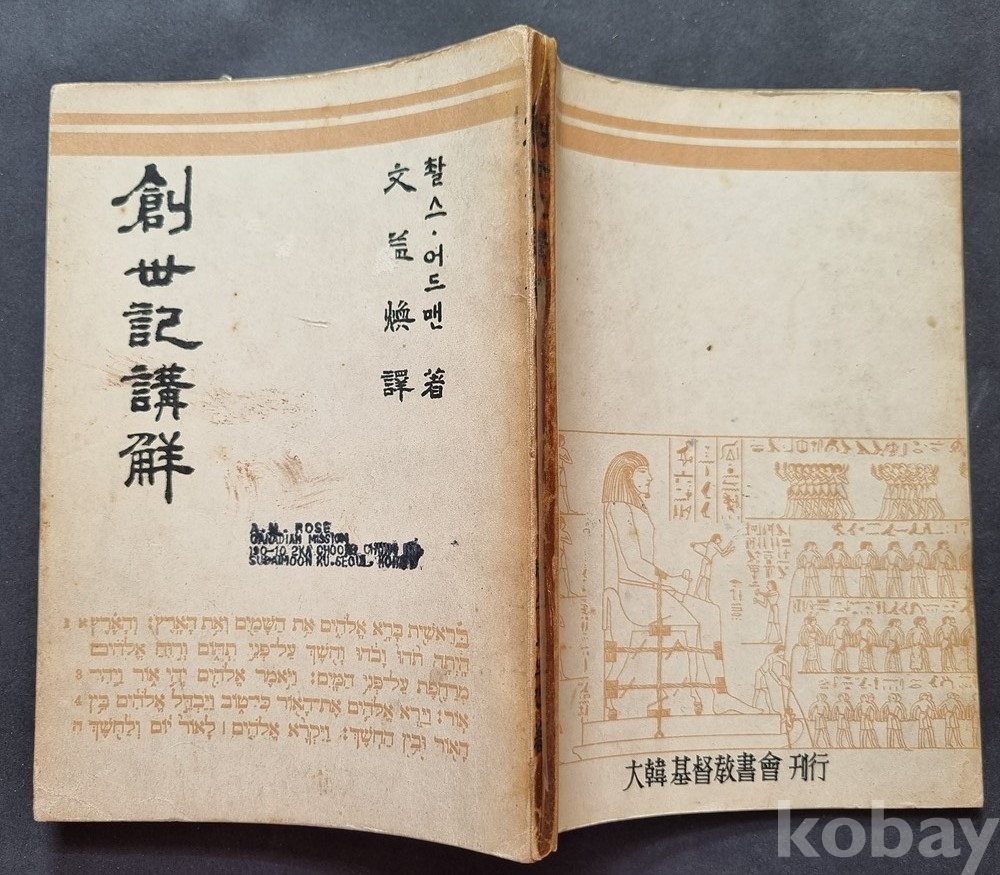 創世記講解
찰스·어드맨 著
文益煥 譯
A. M. ROSE
CANADIAN MISSION
190-10 2KA CHOONG CHUNG
SUDAIMOON KU. SEOUL, KOREA
בְּרֵאשִׁית בָּרָא אֱלֹהִים אֵת הַשָּׁמַיִם וְאֵת הָאָרֶץ׃ וְהָאָרֶץ
הָיְתָה תֹהוּ וָבֹהוּ וְחֹשֶׁךְ עַל־פְּנֵי תְהוֹם וְרוּחַ אֱלֹהִים
מְרַחֶפֶת עַל־פְּנֵי הַמָּיִם׃ וַיֹּאמֶר אֱלֹהִים יְהִי אוֹר וַיְהִי־
אוֹר׃ וַיַּרְא אֱלֹהִים אֶת־הָאוֹר כִּי־טוֹב וַיַּבְדֵּל אֱלֹהִים בֵּין
הָאוֹר וּבֵין הַחֹשֶׁךְ׃ וַיִּקְרָא אֱלֹהִים ׀ לָאוֹר יוֹם וְלַחֹשֶׁךְ
大韓基督敎書會 刊行
kobay